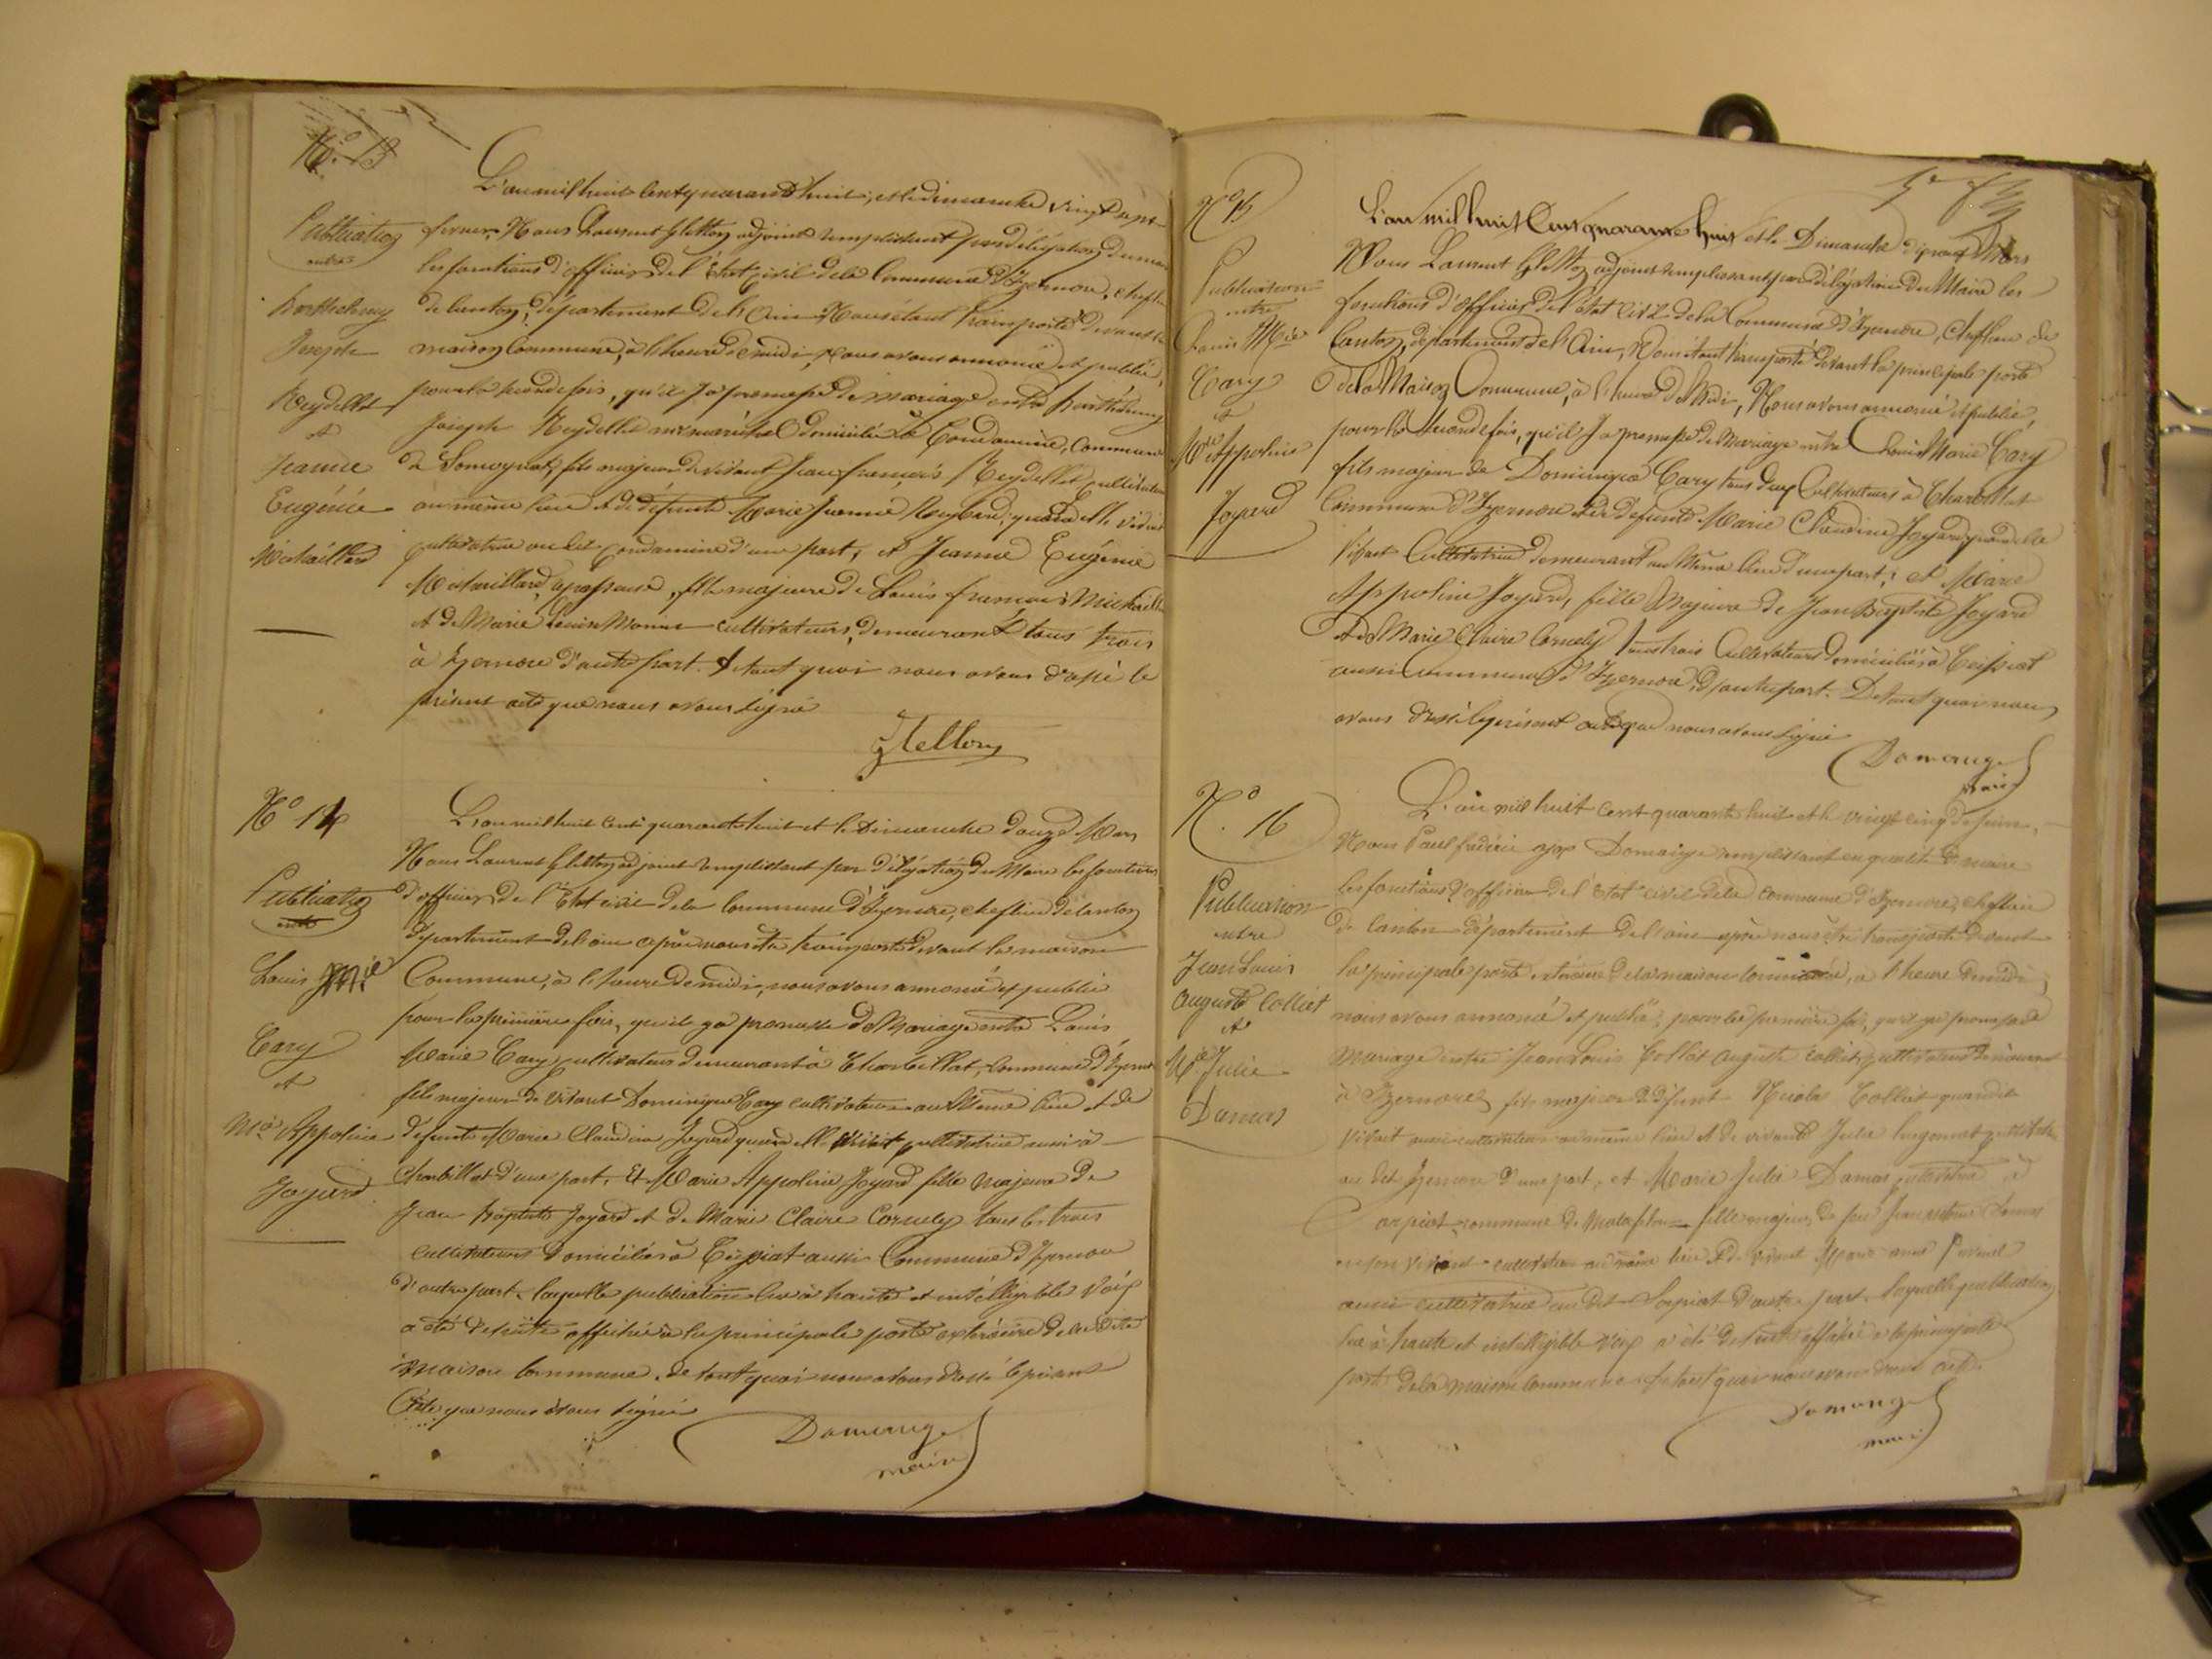 N° 13
Publication
entre
Barthélemy
Joseph
Reydellet
et
Jeanne
Eugénie
Michaillard
L'an mil huit cent quarante huit, et le dimanche vingt sept
février, Nous Laurent Gletton adjoint remplissant par délégation du maire
les fonctions d'officier de l'état civil de la Commune d'Izernore, chef lieu
de Canton, département de l'Ain, Nous étant transporté devant la
maison Commune, à l'heure de midi, nous avons annoncé et publié,
pour la seconde fois, qu'il y a promesse de mariage entre Barthélemy
Joseph Reydellet maréchal domicilié à Condamine, Commune
de fils majeur de vivant Jean françois Reydellet cultivateur
au même lieu et de défunte Marie Jeanne quand elle vivait
cultivatrice au dit Condamine d'une part, et Jeanne Eugénie
Michaillard, repasseuse, fille majeure de Louis françois Michaillard
et de Marie Louise cultivateurs, demeurant tous trois
à Izernore d'autre part. De tout quoi nous avons dressé le
présent acte que nous avons signé
Gletton
N° 14
Publication
entre
Louis Mie
Cary
et
Mie Appoline
Joyard
L'an mil huit cent quarante huit et le Dimanche douze Mars
Nous Laurent Gletton adjoint remplissant par délégation du Maire les fonctions
d'officier de l'Etat civil de la Commune d'Izernore, chef lieu de Canton
département de l'ain après nous être transporté devant la maison
Commune, à l'heure de midi, nous avons annoncé et publié
pour la première fois, qu'il y a promesse de Mariage entre Louis
Marie Cary cultivateur demeurant à Charbillat, Commune d'Izernore
fils majeur de vivant Dominique Cary cultivateur au Même lieu et de
défunte Marie Claudine Joyard quand elle vivait cultivatrice aussi à
Charbillat d'une part, Et Marie Appoline Joyard fille majeure de
Jean Baptiste Joyard et de Marie Claire Cornely tous les trois
cultivateurs domiciliés à Ceissiat aussi Commune d'Izernore
d'autre part. laquelle publication lue à haute et intelligible voix
a été de suite affichée à la principale porte extérieure de la dite
maison commune. de tout quoi nous avons dressé le présent
Acte que nous avons signé
Domange
maire
N° 15
Publication
entre
Louis Mie
Cary
et
Mie Appoline
Joyard
L'an mil huit Cent quarante huit et le Dimanche dix neuf Mars
Nous Laurent Gletton adjoint remplissant par délégation du Maire les
fonctions d'officier de l'état civil de la Commune d'Izernore, Chef lieu de
Canton, département de l'Ain, Nous étant transporté devant la principale porte
de la Maison Commune, à l'heure de Midi, Nous avons annoncé et publié,
pour la seconde fois, qu'il y a promesse de Mariage entre Louis Marie Cary
fils majeur de Dominique Cary tous deux Cultivateurs à Charbillat
Commune d'Izernore et de défunte Marie Claudine Joyard quand elle
vivait Cultivatrice demeurant au Même lieu d'une part; et Marie
Appoline Joyard, fille Majeure de Jean Baptiste Joyard
et de Marie Claire Cornely tous trois Cultivateurs domiciliés à Ceissiat
aussi commune d'Izernore, d'autre part. De tout quoi nous
avons dressé le présent acte que nous avons signé
Domange
maire
N° 16
Publication
entre
Jean Louis
Auguste Colliet
et
Mie Julie
Damas
L'an mil huit cent quarante huit et le vingt cinq de juin,
Nous Paul frédéric Domange remplissant en qualité de maire
les fonctions d'officier de l'état civil de la commune d'Izernore, chef lieu
de Canton département de l'ain après nous être transporté devant
la principale porte extérieure de la maison commune, à l'heure de midi,
nous avons annoncé et publié, pour la première fois, qu'il y a promesse de
mariage entre Jean Louis Colliet Auguste Colliet, cultivateur demeurant
à Izernore, fils majeur de défunt Nicolas Colliet quand il
vivait aussi cultivateur au même lieu et de vivante Julie
au dit Izernore d'une part, et Marie Julie Damas cultivatrice à
commune de Matafelon fille majeure de feu Jean Damas
en son vivant cultivateur au même lieu et de vivante Marie
aussi cultivatrice au dit d'autre part. Laquelle publication
lue à haute et intelligible voix a été de suite affichée à la principale
porte de la maison commune. De tout quoi nous avons dressé acte.
Domange
maire